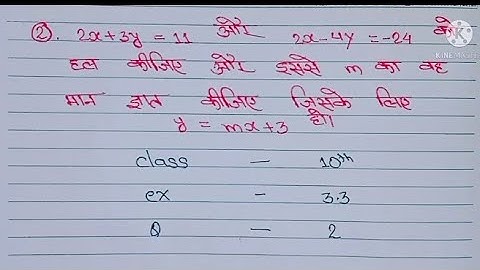 ②. 2x+3y = 11 और 2x-4y = -24 को
हल कीजिए और इससे m का वह
मान ज्ञात कीजिए जिसके लिए
y = mx+3 हो।
class - 10th
ex - 3.3
Q - 2
KINEMASTER